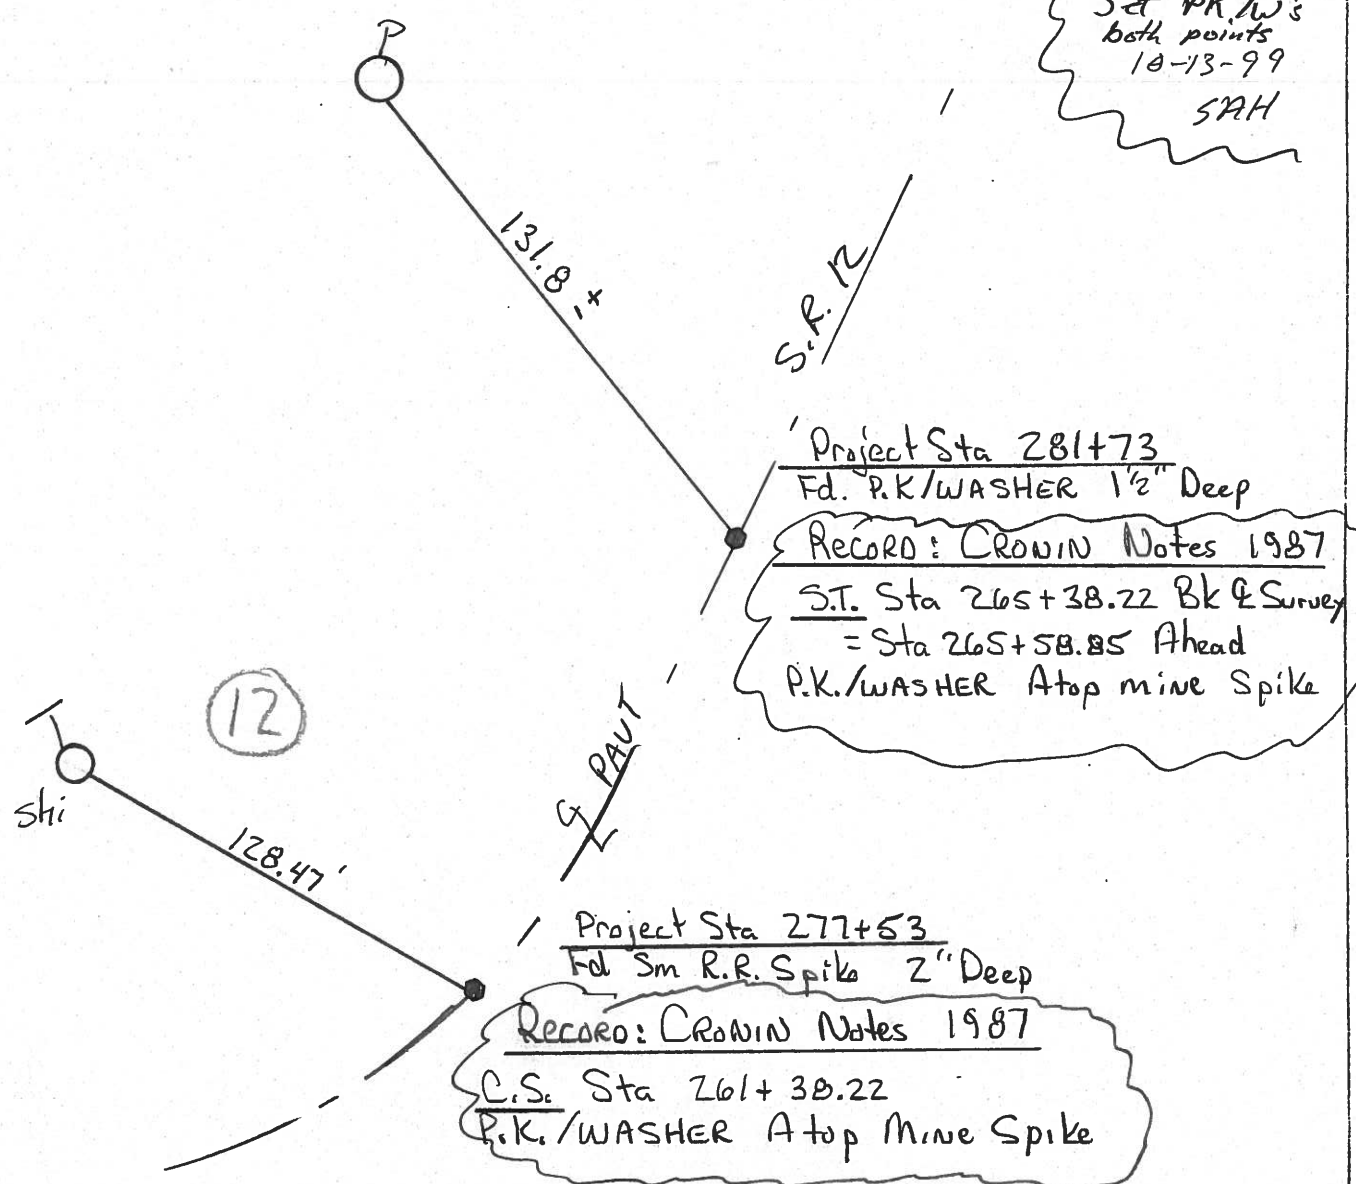 Set P.K./W's
both points
10-13-99
SAH
P
131.8'±
S.R. 12
Project Sta 281+73
Fd. P.K/WASHER 1½" Deep
RECORD: CRONIN Notes 1987
S.T. Sta 265+38.22 Bk ℄ Survey
= Sta 265+58.85 Ahead
P.K./WASHER Atop mine Spike
12
℄ PAVT
Shi
128.47'
Project Sta 277+53
Fd Sm R.R. Spike 2" Deep
RECORD: CRONIN Notes 1987
C.S. Sta 261+38.22
P.K./WASHER Atop Mine Spike